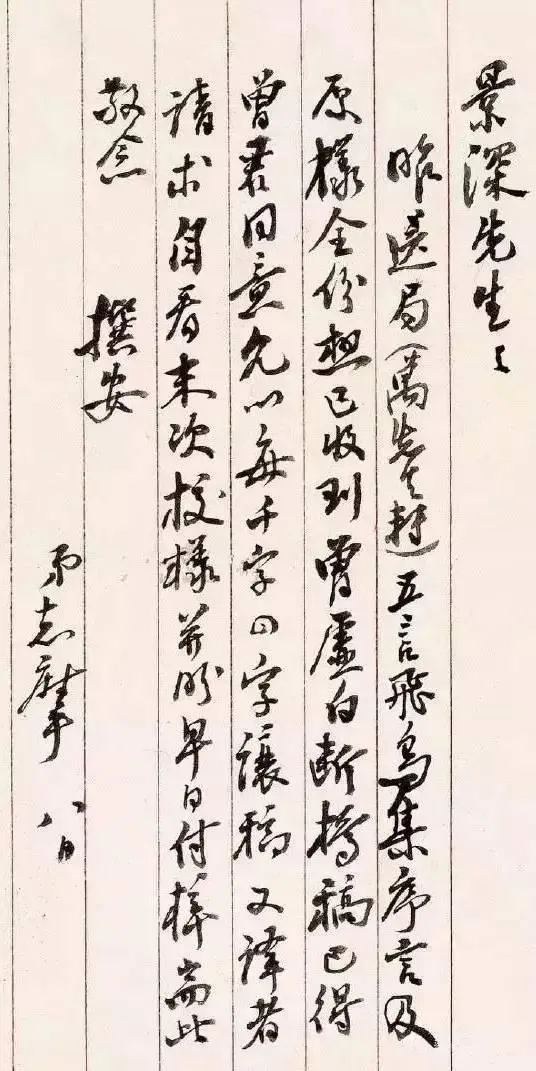 景深先生:
昨送局(萬先生轉)五言飛鳥集序言及
原樣全份想已收到曾虛白斷橋稿已得
曾君同意允以每千字四字讓稿又譯者
請求自看末次校樣并盼早日付梓耑此
敬念
撰安
弟志摩 八日